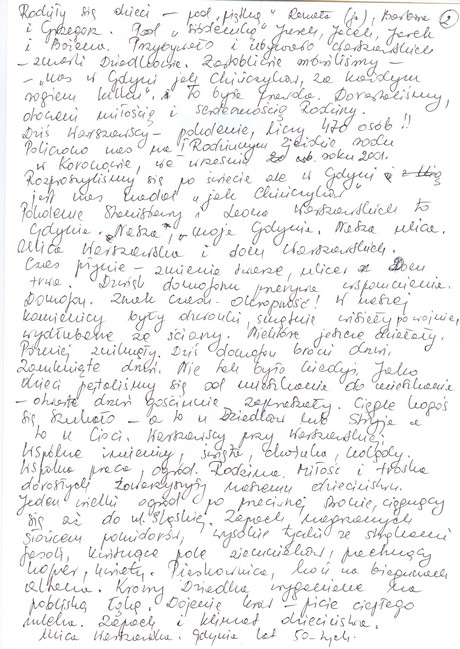 Rodziły się dzieci – pod „piątką" Renata (ja), Barbara
i Grzegorz. Pod „siódemką" Jurek, Jacek, Jarek
i Bożena. Przybywało i ubywało Warszawskich
– zmarli Dziadkowie. Żartobliwie mówiliśmy –
– „Nas w Gdyni jak Chińczyków, za każdym
rogiem kilku". I to była prawda. Dorastaliśmy,
otoczeni miłością i serdecznością Rodziny.
Dziś Warszawscy – pokolenie, liczy 470 osób!!
Policzono nas na I Rodzinnym Zjeździe rodu
w Koronowie, we wrześniu ub. roku 2001.
Rozproszyliśmy się po świecie ale w Gdyni
jest nas nadal „jak Chińczyków"
Pokolenie Stanisławy i Leona Warszawskich to
Gdynia. „Nasza", „moja Gdynia". Nasza ulica.
Ulica Warszawska i dom Warszawskich.
Czas płynie – zmienia twarze, ulice. Dom
trwa. Dźwięk domofonu przerywa wspomnienia.
Domofon. Znak czasu. Okropność! W naszej
kamienicy były dzwonki, smętnie wisiały po wojnie,
wydłubane ze ściany. Niektóre jeszcze działały.
Później zniknęły. Dziś domofon broni drzwi.
Zamknięte drzwi. Nie tak było kiedyś. Jako
dzieci pętaliśmy się od mieszkania do mieszkania
– otwarte drzwi gościnnie zapraszały. Ciągle kogoś
się szukało – a to u Dziadków lub Stryja a
to u Cioci. Warszawscy przy Warszawskiej.
Wspólne imieniny, święta, choinka, kolędy.
Wspólna praca, ogród. Rodzina. Miłość i troska
dorosłych towarzyszyły naszemu dzieciństwu.
Jeden wielki ogród po przeciwnej stronie, ciągnący
się aż do ul. Śląskiej. Zapach nagrzanych
słońcem pomidorów, wysokie tyczki ze strąkami
fasoli, kwitnące pole ziemniaków, pachnący
koper, kwiaty. Piaskownica, koń na biegunach
Krowy Dziadka wyganiane na
pobliską łąkę. Dojenie krów – picie ciepłego
mleka. Zapach i klimat dzieciństwa.
Ulica Warszawska. Gdynia lat 50-tych.
2